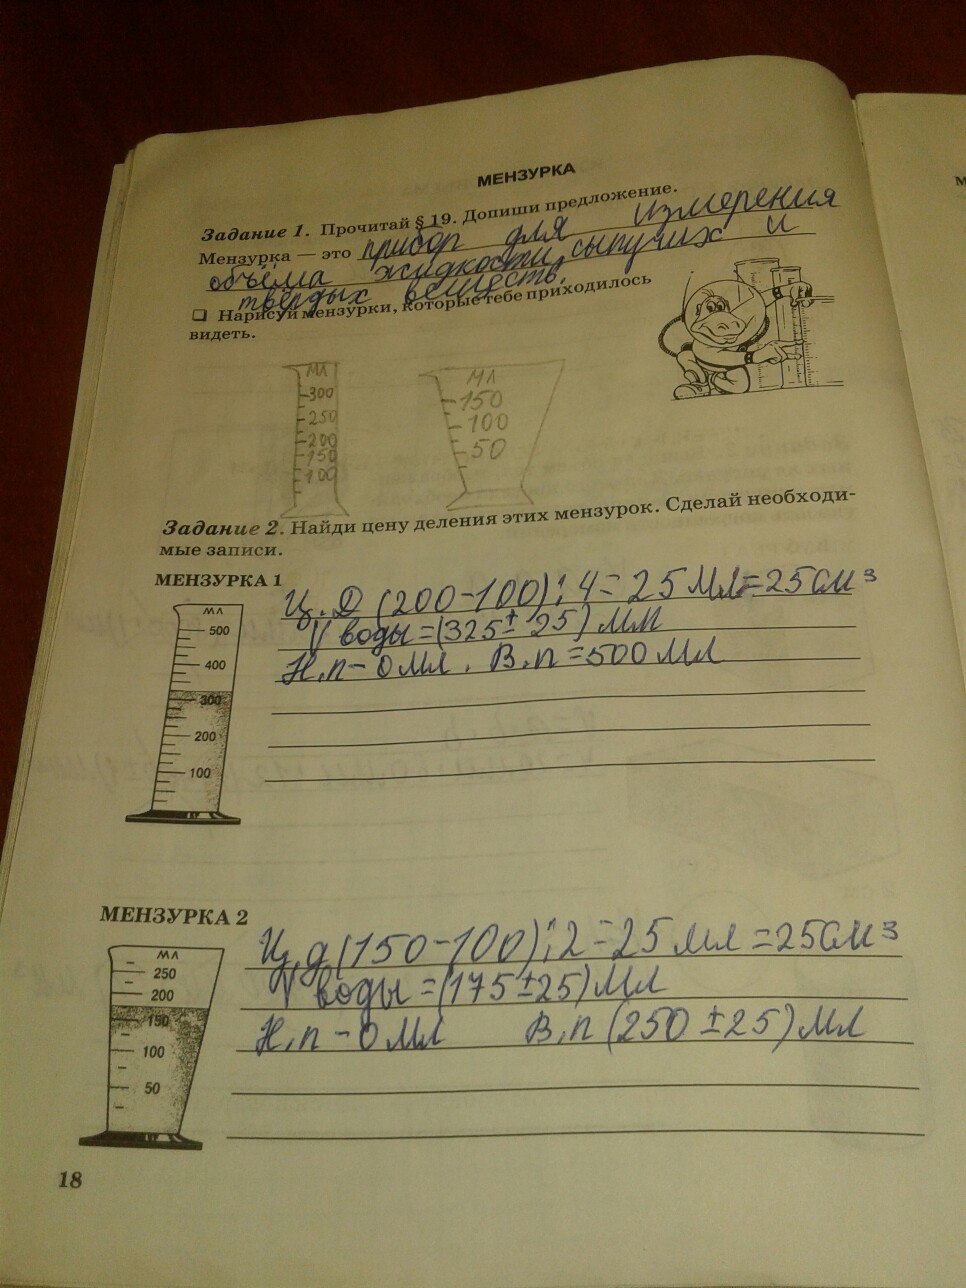 МЕНЗУРКА
Задание 1. Прочитай § 19. Допиши предложение.
Мензурка — это прибор для измерения
объёма жидкости, сыпучих и
твёрдых веществ.
❑ Нарисуй мензурки, которые тебе приходилось
видеть.
МЛ
300
250
200
150
100
МЛ
150
100
50
Задание 2. Найди цену деления этих мензурок. Сделай необходи-
мые записи.
МЕНЗУРКА 1
Ц.Д (200-100):4=25 Мл=25см³
V воды=(325±25) мл
Н.п-0 мл. В.п=500 мл
МЛ
500
400
300
200
100
МЕНЗУРКА 2
Ц.д(150-100):2=25 мл =25см³
V воды=(175±25) мл
Н.п-0 мл В.п(250±25) мл
МЛ
250
200
150
100
50
18